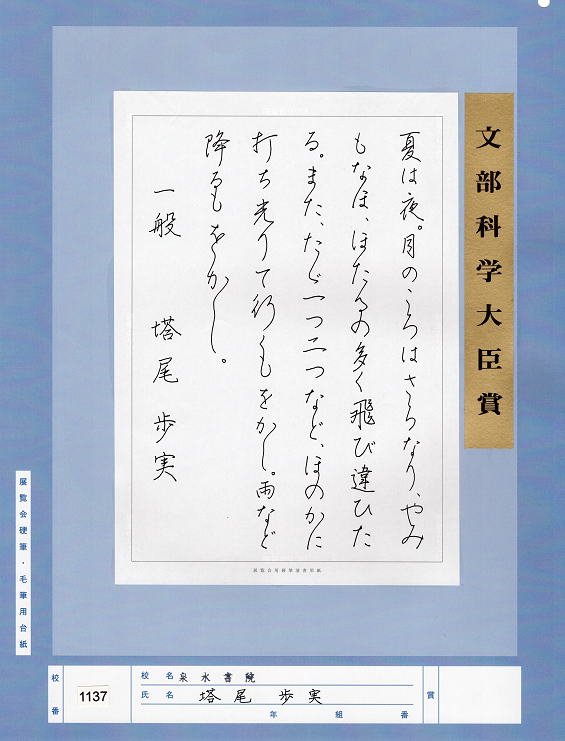 文部科学大臣賞
夏は夜。月のころはさらなり、やみ
もなほ、ほたるの多く飛び違ひた
る。また、ただ一つ二つなど、ほのかに
打ち光りて行くもをかし。雨など
降るもをかし。
一般 塔尾歩実
展覧会用硬筆清書用紙
展覧会硬筆・毛筆用台紙
校番 1137
校名 泉水書院
氏名 塔尾歩実
年 組 番
賞